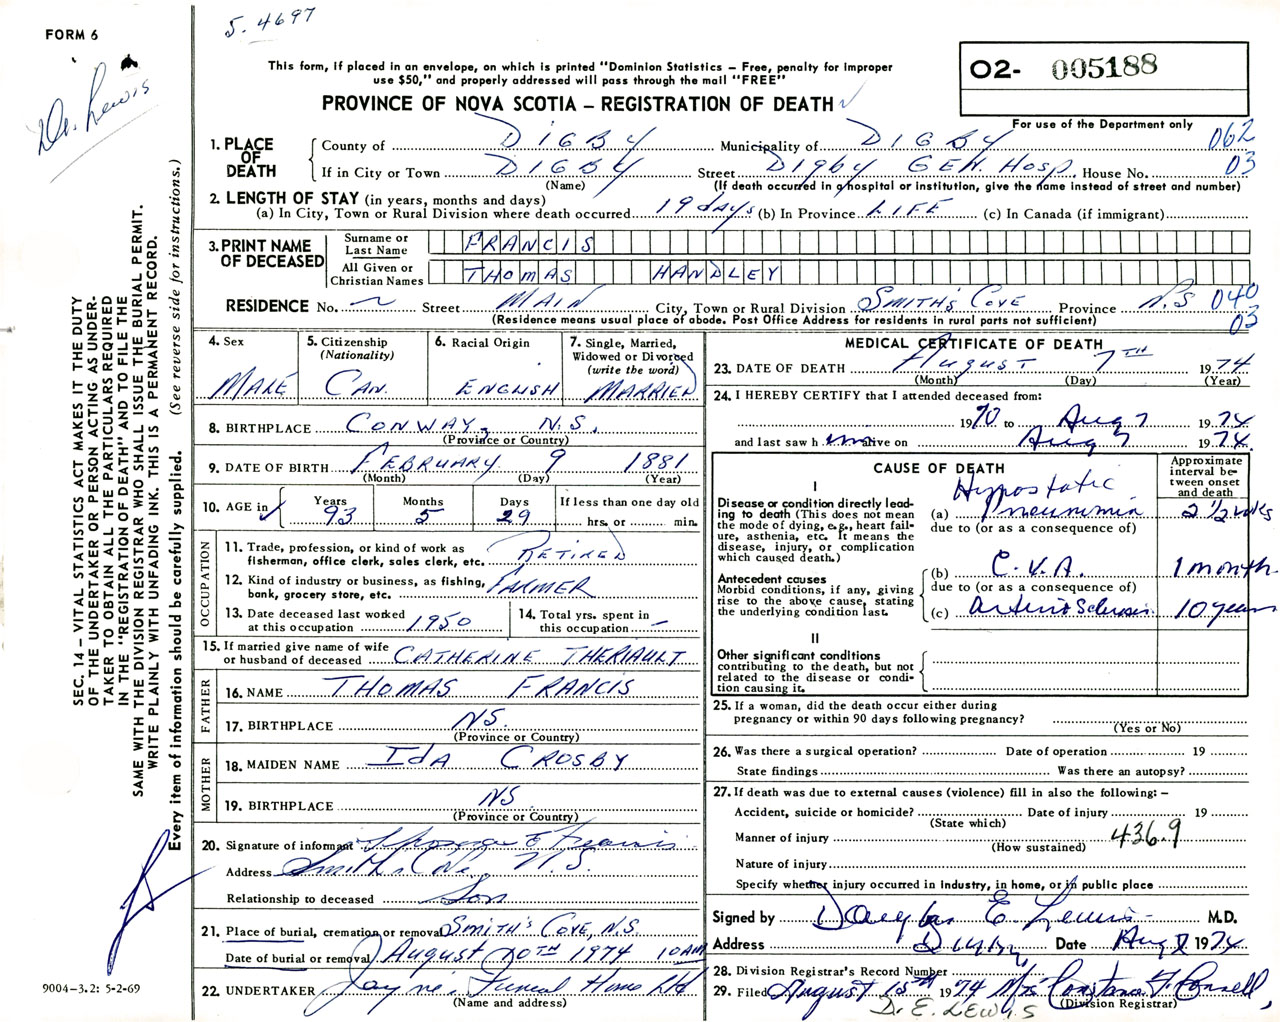 5. 4697
FORM 6
Dr. Lewis
This form, if placed in an envelope, on which is printed "Dominion Statistics – Free, penalty for improper
use $50," and properly addressed will pass through the mail "FREE"
PROVINCE OF NOVA SCOTIA – REGISTRATION OF DEATH
O2- 005188
For use of the Department only
062
03
1. PLACE OF DEATH
County of DIGBY Municipality of DIGBY
If in City or Town DIGBY Street Digby GEN. Hosp. House No.
(Name) (If death occurred in a hospital or institution, give the name instead of street and number)
2. LENGTH OF STAY (in years, months and days)
(a) In City, Town or Rural Division where death occurred 19 days (b) In Province LIFE (c) In Canada (if immigrant)
3. PRINT NAME OF DECEASED
Surname or Last Name FRANCIS
All Given or Christian Names THOMAS HANDLEY
RESIDENCE No. Street MAIN City, Town or Rural Division SMITH'S COVE Province N.S 040
03
(Residence means usual place of abode. Post Office Address for residents in rural parts not sufficient)
4. Sex MALE
5. Citizenship (Nationality) CAN.
6. Racial Origin ENGLISH
7. Single, Married, Widowed or Divorced (write the word) MARRIED
8. BIRTHPLACE CONWAY, N.S.
(Province or Country)
9. DATE OF BIRTH FEBRUARY 9 1881
(Month) (Day) (Year)
10. AGE in Years 93 Months 5 Days 29 If less than one day old
hrs. or min.
OCCUPATION
11. Trade, profession, or kind of work as
fisherman, office clerk, sales clerk, etc. RETIRED
12. Kind of industry or business, as fishing,
bank, grocery store, etc. FARMER
13. Date deceased last worked
at this occupation 1950
14. Total yrs. spent in
this occupation –
15. If married give name of wife
or husband of deceased CATHERINE THERIAULT
FATHER
16. NAME THOMAS FRANCIS
17. BIRTHPLACE NS.
(Province or Country)
MOTHER
18. MAIDEN NAME IdA CROSBY
19. BIRTHPLACE NS
(Province or Country)
20. Signature of informant
Address Smith's Cove, N.S.
Relationship to deceased Son
21. Place of burial, cremation or removal SMITH'S COVE, N.S.
Date of burial or removal August 10TH 1974 10AM
22. UNDERTAKER Jayne's Funeral Home Ltd
(Name and address)
MEDICAL CERTIFICATE OF DEATH
23. DATE OF DEATH August 7TH 1974
(Month) (Day) (Year)
24. I HEREBY CERTIFY that I attended deceased from:
1970 to Aug 7 1974
and last saw h im alive on Aug 7 1974.
CAUSE OF DEATH
Approximate interval between onset and death
I
Disease or condition directly leading to death (This does not mean the mode of dying, e.g., heart failure, asthenia, etc. It means the disease, injury, or complication which caused death.)
(a) Hypostatic Pneumonia 2 1/2 wks
due to (or as a consequence of)
Antecedent causes
Morbid conditions, if any, giving rise to the above cause, stating the underlying condition last.
(b) C.V.A. 1 month
due to (or as a consequence of)
(c) Arterio Sclerosis 10 years
II
Other significant conditions
contributing to the death, but not related to the disease or condition causing it.
25. If a woman, did the death occur either during
pregnancy or within 90 days following pregnancy?
(Yes or No)
26. Was there a surgical operation? Date of operation 19
State findings Was there an autopsy?
27. If death was due to external causes (violence) fill in also the following: –
Accident, suicide or homicide? Date of injury 19
(State which)
Manner of injury 436.9
(How sustained)
Nature of injury
Specify whether injury occurred in industry, in home, or in public place
Signed by Douglas E. Lewis M.D.
Address Digby Date Aug 7 1974
28. Division Registrar's Record Number
29. Filed August 15th 1974 Mrs Constance F. Connell
(Division Registrar)
Dr. E. LEWIS
SEC. 14 – VITAL STATISTICS ACT MAKES IT THE DUTY
OF THE UNDERTAKER OR PERSON ACTING AS UNDER-
TAKER TO OBTAIN ALL THE PARTICULARS REQUIRED
IN THE "REGISTRATION OF DEATH" AND TO FILE THE
SAME WITH THE DIVISION REGISTRAR WHO SHALL ISSUE THE BURIAL PERMIT.
WRITE PLAINLY WITH UNFADING INK. THIS IS A PERMANENT RECORD.
Every item of information should be carefully supplied. (See reverse side for instructions.)
9004-3.2: 5-2-69